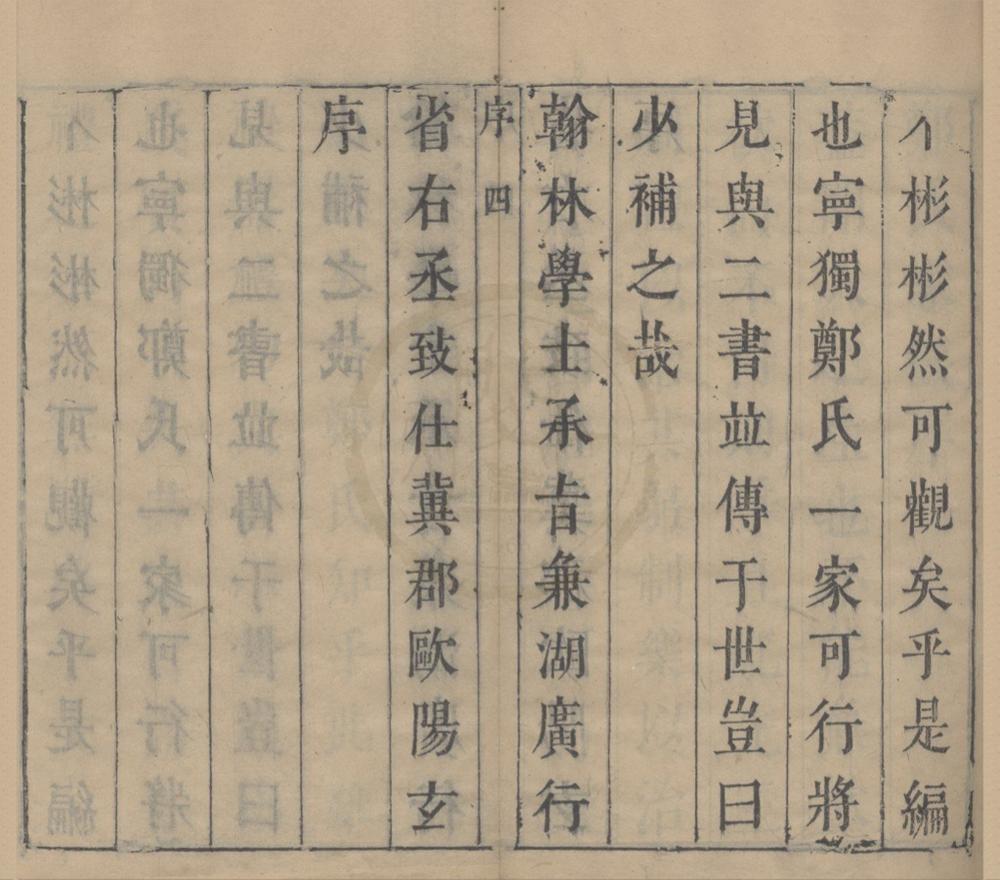 彬彬然可觀矣乎是編
也寧獨鄭氏一家可行將
見與二書並傳于世豈曰
少補之哉
翰林學士承旨兼湖廣行
序 四
省右丞致仕冀郡歐陽玄
序